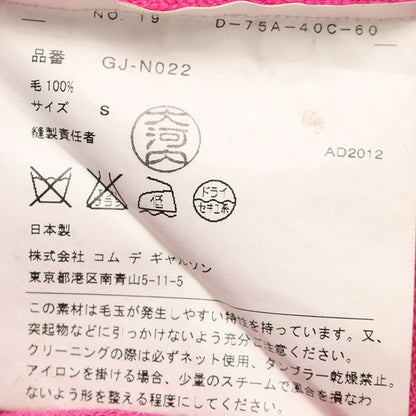 NO. 19 D-75A-40C-60
品番 GJ-N022
毛 100%
サイズ S
縫製責任者
大河内
AD2012
エンソ
サラシ
低
ドライ
セキユ系
日本製
株式会社 コム デ ギャルソン
東京都港区南青山5-11-5
この素材は毛玉が発生しやすい特性を持っています。又、
突起物などに引っかけないよう充分ご注意ください。
クリーニングの際は必ずネット使用、タンブラー乾燥禁止。
アイロンを掛ける場合、少量のスチームで風合を損なわ
ないよう形を整える程度にしてください。